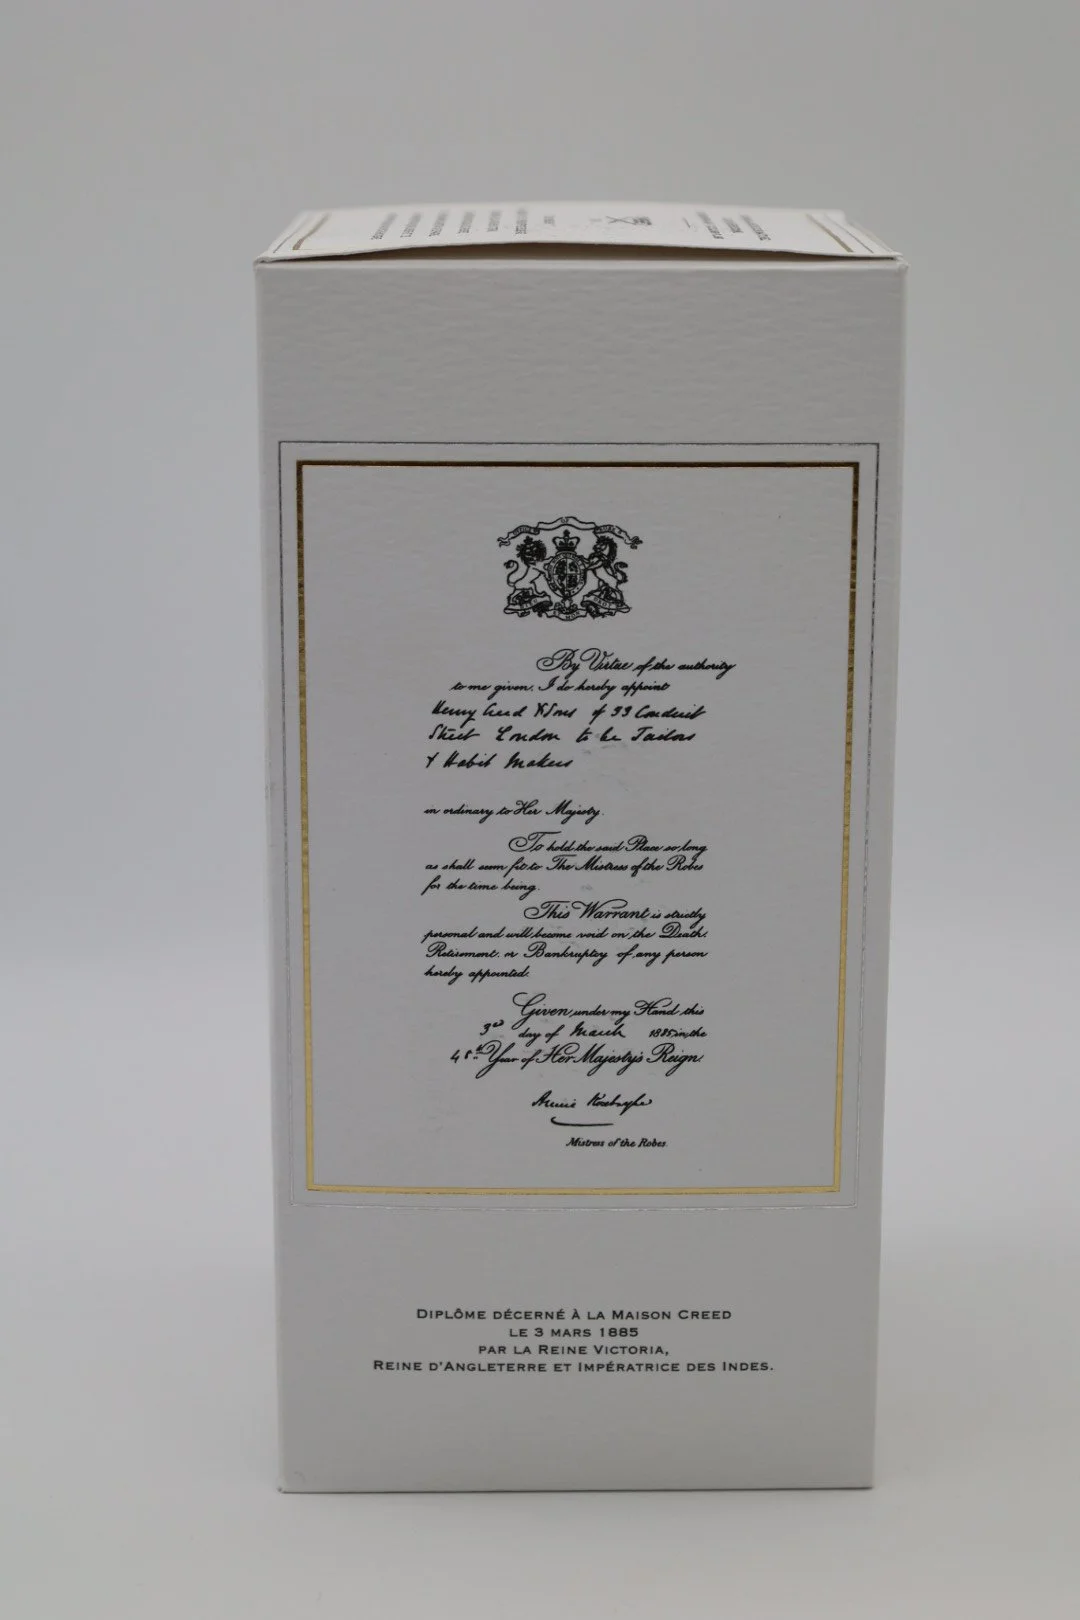 By Virtue of the authority
to me given, I do hereby appoint
Henry Creed & Sons of 33 Conduit
Street London to be Tailors
& Habit Makers
in ordinary to Her Majesty.
To hold the said Place so long
as shall seem fit to The Mistress of the Robes
for the time being.
This Warrant is strictly
personal and will become void on the Death,
Retirement, or Bankruptcy of any person
hereby appointed.
Given under my Hand this
3rd day of March 1885 in the
48th Year of Her Majesty's Reign.
Annie Roxburghe
Mistress of the Robes.
DIPLÔME DÉCERNÉ À LA MAISON CREED
LE 3 MARS 1885
PAR LA REINE VICTORIA,
REINE D'ANGLETERRE ET IMPÉRATRICE DES INDES.